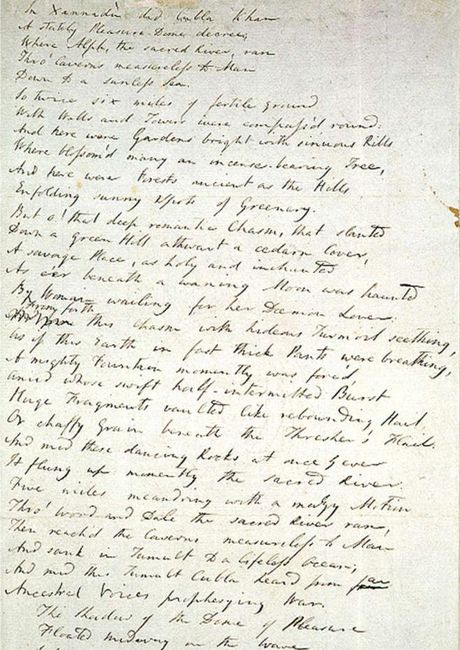 In Xannadù did Cubla Khan
A stately Pleasure-Dome decree,
Where Alph, the sacred River, ran
Thro' Caverns measureless to Man
Down to a sunless Sea.
So twice six miles of fertile ground
With Walls and Towers were compass'd round:
And here were Gardens bright with sinuous Rills
Where blossom'd many an incense-bearing Tree,
And here were Forests ancient as the Hills
Enfolding sunny Spots of Greenery.
But o! that deep romantic Chasm, that slanted
Down a green Hill athwart a cedarn Cover,
A savage Place, as holy and inchanted
As e'er beneath a waning Moon was haunted
By Woman wailing for her Dæmon Lover:
From forth
this Chasm with hideous Turmoil seething,
As if this Earth in fast thick Pants were breathing,
A mighty Fountain momently was forc'd,
Amid whose swift half-intermitted Burst
Huge Fragments vaulted like rebounding Hail
Or chaffy Grain beneath the Thresher's Flail.
And mid these dancing Rocks at once & ever
It flung up momently the sacred River.
Five miles meandring with a mazy Motion
Thro' Wood and Dale the sacred River ran,
Then reach'd the Caverns measureless to Man
And sank in Tumult to a lifeless Ocean;
And mid this Tumult Cubla heard from far
Ancestral Voices prophesying War.
The Shadow of the Dome of Pleasure
Floated midway on the Wave